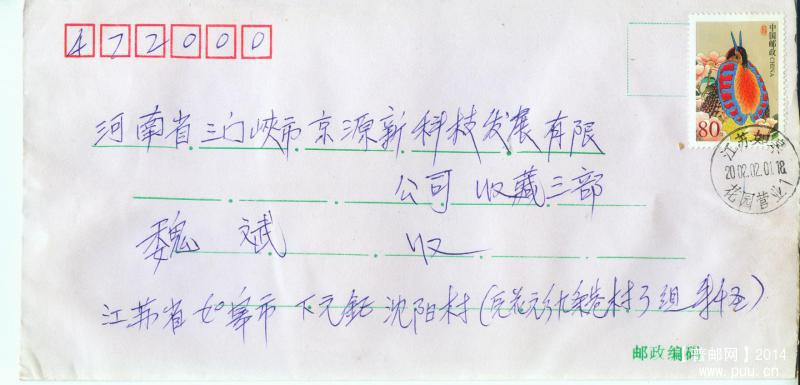 472000
中国邮政 CHINA
80
江苏如皋
2002.02.01.18
花园营业
河南省三门峡市京源新科技发展有限
公司 收藏三部
魏斌 收
江苏省如皋市下元 沈阳村(
邮政编码
普邮网】2014
www.puu.cn